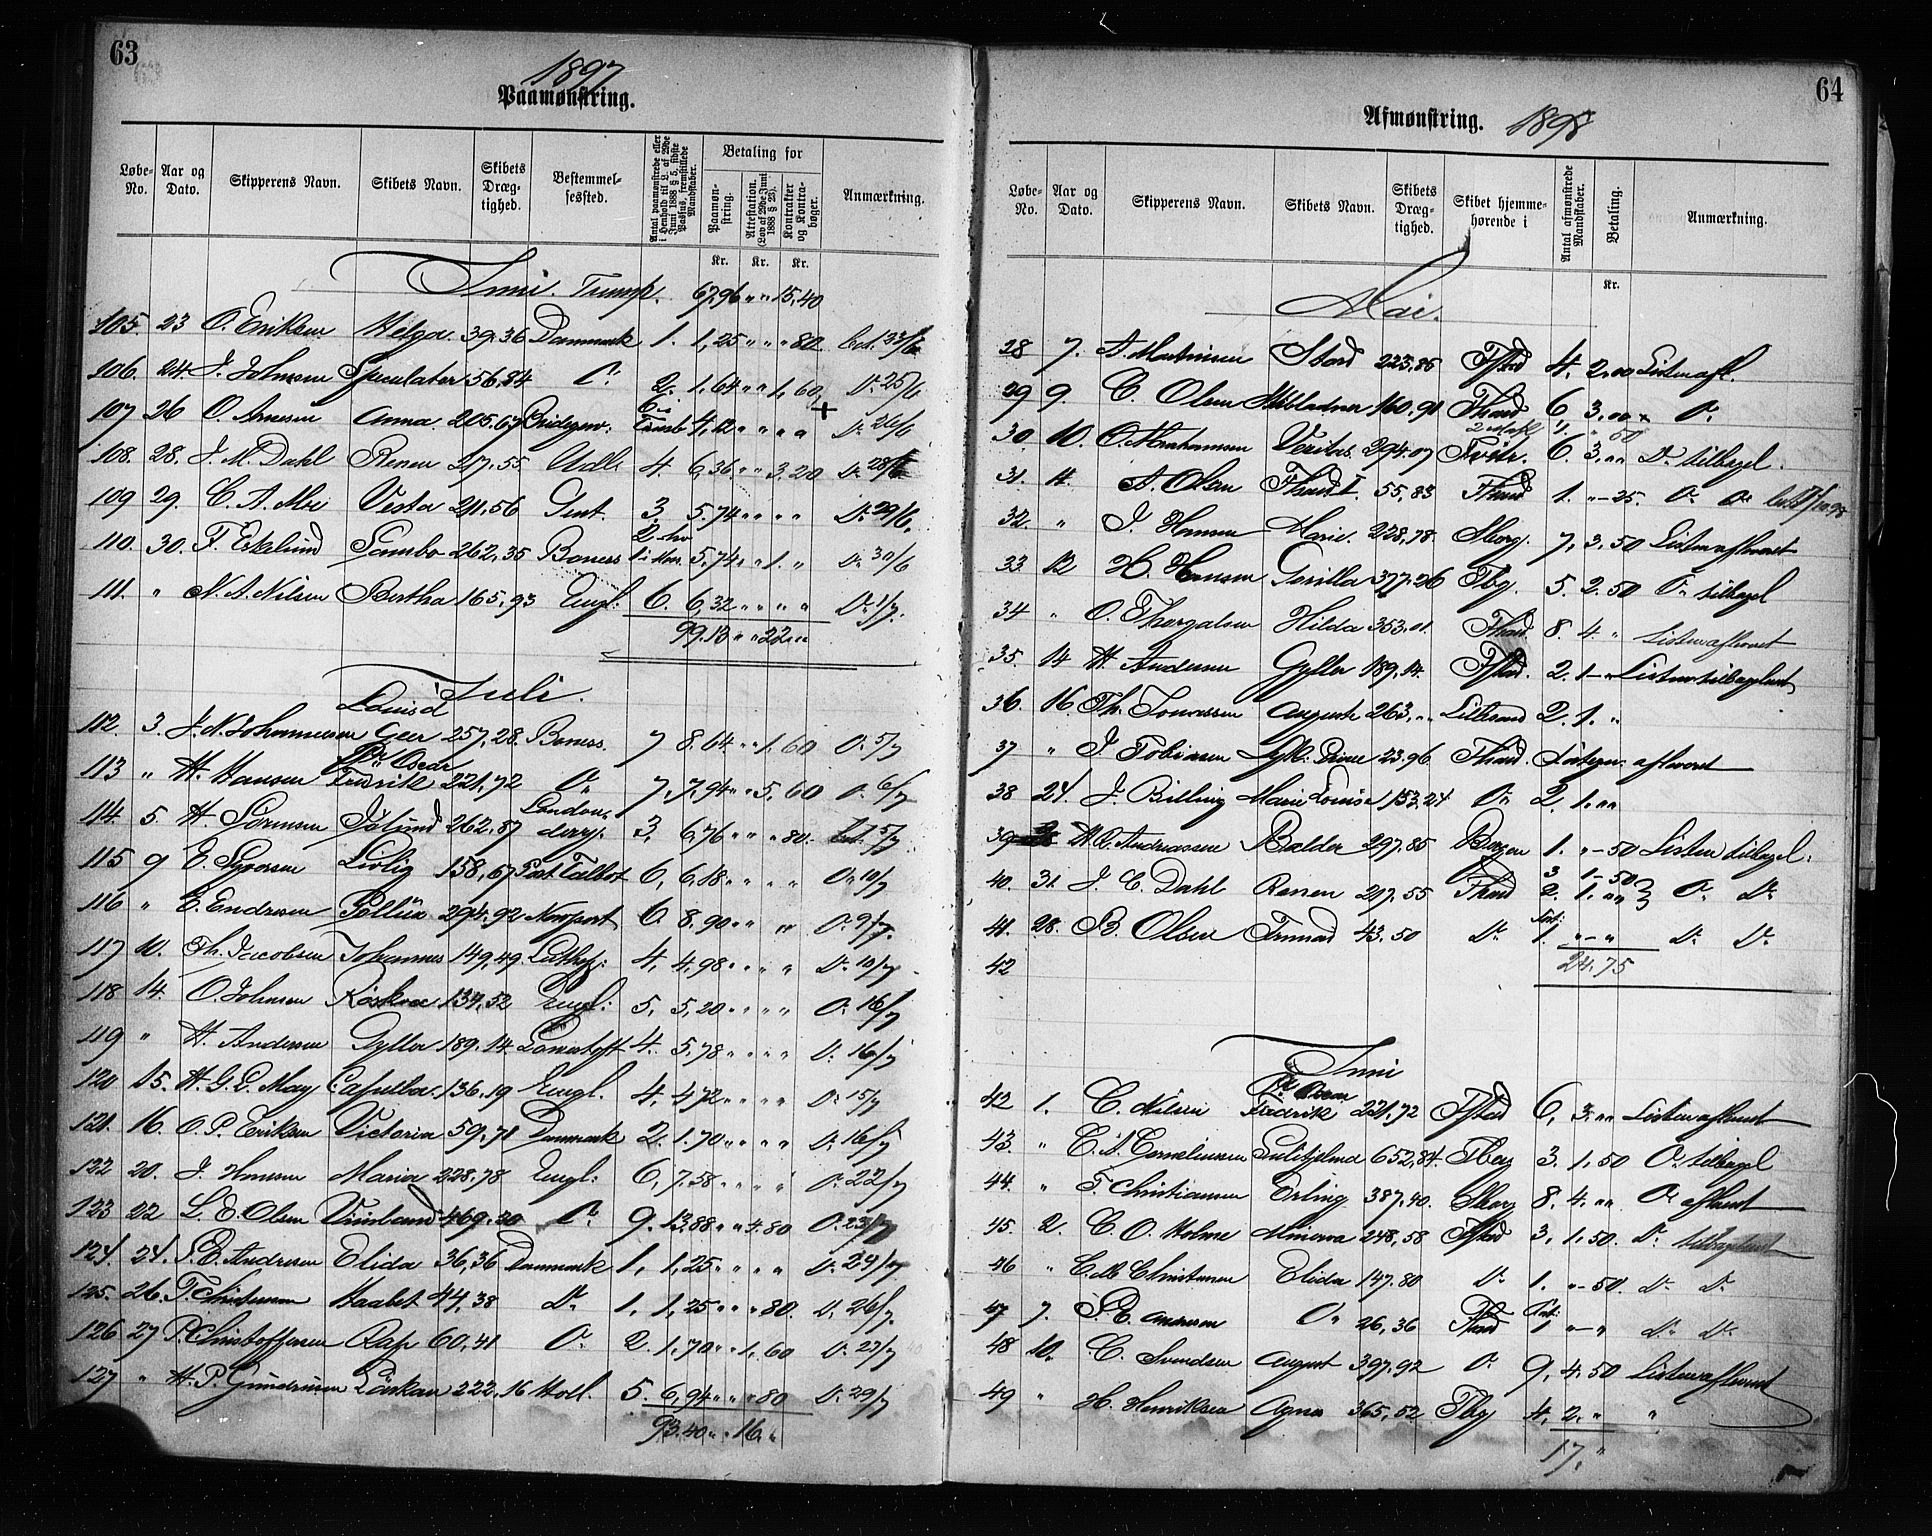 63
1897
Paamønstring.
Løbe-No. Aar og Dato. Skipperens Navn. Skibets Navn. Skibets Dræg-tighed. Bestemmel-sessted. Antal paamønstrede eller i Henhold til L. af 29de Juni 1888 § 5, sidste Passus, fremstillede Mandskaber. Betaling for Paamøn-string. Attestation. (Lov af 29de Juni 1888 § 23). Kontrakter og Kontra-bøger. Anmærkning.
Kr. Kr. Kr.
Juni. Transp. 67,96 " " 15,40
105. 23 O. Eriksen Helga 39.36 Danmark 1. 1,25 " " " 80
106. 24. J. Johnsen Speculater 56,84 Do 2. 1,64 " " 1,60 Do 25/6
107 26 O. Arnesen Anna 205.67 4,12 " " " " Do 26/6
108. 28. J. M. Dahl Renen 217.55 Udl. 4 6,36 " " 3.20 Do 28/6
109 29. C. A. Moe Vesta 211,56 Gent. 3. 5.74 " " " " Do 29/6
110. 30. F. Eklund Sambo 262,35 Boness 5,74 " " 1. " Do 30/6
111. " N. A. Nilsen Bertha 165,93 Engl: 6. 6,32 " " " " Do 1/7.
99.13 " " 22 " "
Juli.
112. 3. J. N. Johannesen Louis d Geer 257,28. Boness. 7 8.64 " " 1.60 Do 5/7
113 " H. Hansen Pr. Oscar Fredrik 221,72 Do 7, 7,94 " " 5,60 Do 6/7
114. 5. H. Sørensen 262,87 London derry. 3. 6,76 " " " 80. 5/7
115 9 E. Syversen Livlig 158,67 Port Talbot 6, 6,18 " " " " Do 10/7
116 " E. Endresen Pollux 294.92 Newport 6. 8.90 " " " " Do 9/7.
117 10. Th. Jacobsen Johannes 149,49 4, 4,98 " " " " Do 10/7
118 14. O. Johnsen 134,52 Engl: 5, 5,20 " " " " Do 16/7
119 " H. Andersen Gyller 189.14. Lowestoft 4. 5.78 " " " " Do 16/7
120 15. H. G. L. May Capella 136,19 Engl. 4, 4,72 " " " " Do 15/7
121. 16. O. P. Eriksen Victoria 59,71 Danmark 2. 1.70 " " " " Do 16/7
122 20. J. Hansen Maria 228.78 Engl: 6, 7.58 " " " " Do 22/7
123 22 L. E. Olsen 469.30 Do 9. 13,88 " " 4.80 Do 23/7
124. 24. P. E. Andresen Elida 36,36 Danmark 1, 1,25 " " " " Do 24/7
125. 26. Haabet 44,38 Do 1, 1,25 " " " 80. Do 26/7.
126 27 P. Christoffersen Rap 60,41 Do 2. 1,70 " " 1,60 Do 27/7
127 " H. P. Gundersen 222.16 Holl. 5. 6,94 " " " 80 Do 29/7
93.40 " " 16. "
64
Afmønstring. 1898
Løbe-No. Aar og Dato. Skipperens Navn. Skibets Navn. Skibets Dræg-tighed. Skibet hjemme-hørende i Antal afmønstrede Mandskaber. Betaling. Anmærkning.
Kr.
Mai.
28 7. A. Martinsen Stord 223,86 Fstad 4. 2,00 Listen afl.
29 9. C. Olsen 160.91 Fhand 6 3,00 Do
30. 10. O. Abrahamsen Veritas 294.07 6. 3," " Do tilbagel.
31. 11. A. Olsen Fhand I. 55,83 Fhand 1. " - 25. Do Do
32. " J. Hansen Marie. 228,78 Sborg. 7, 3,50 Listen afleveret
33. 12 H. Hansen Gorilla 377.26 Tbg. 5. 2.50 Do tilbagel
34 " O. Thorgalsen Hilda 353.01. Fhand. 8. 4 " Listen afleveret
35. 14 H. Andersen Gyller 189,14. Fstad. 2. 1 - " Listen tilbagelevt
36. 16. Th. Tomassen Auguste 263, " " Lillesand 2. 1. "
37 " J. Tobiasen 23.96 Fhand. Listen afleveret
38 24. J. Billing Marie Louise 153.24 Do 2. 1. " "
39 Andreassen Balder 297.85 Bergen 1. " - 50 Listen tilbagel:
40. 31. J. C. Dahl Renen 217.55 Fhand 3 1 - 50 2. 1. " " Do Do
41. 28. B. Olsen 43.50 Do 1. " - " Do Do
42 24.75
Juni
42 1. C. Nilsen Pr. Oscar Fredrik 221,72 Fstad 6, 3, " " Listen afleveret
43. " C. A. Corneliussen Sulitjelma 652,84. Tberg 3. 1,50 Do tilbagel
44. " F. Christiansen Erling 387,40. Sborg 8. 4. " " Do afleveret
45. 2. C. O. Holme Minerva 248,58 Fstad 3, 1,50. Do tilbagelevt
46 " C. M. Christensen Elida 147.80 Do 1. " - 50. Do Do
47 7. P. E. Andresen Do 26,36 Fhand 1 " - " Do Do
48 10. C. Svendsen August 397,92 Do 9, 4,50 Listen afleveret
49 " H. Henriksen Agnes 365,52 Tbg 4, 2, " "
17, "